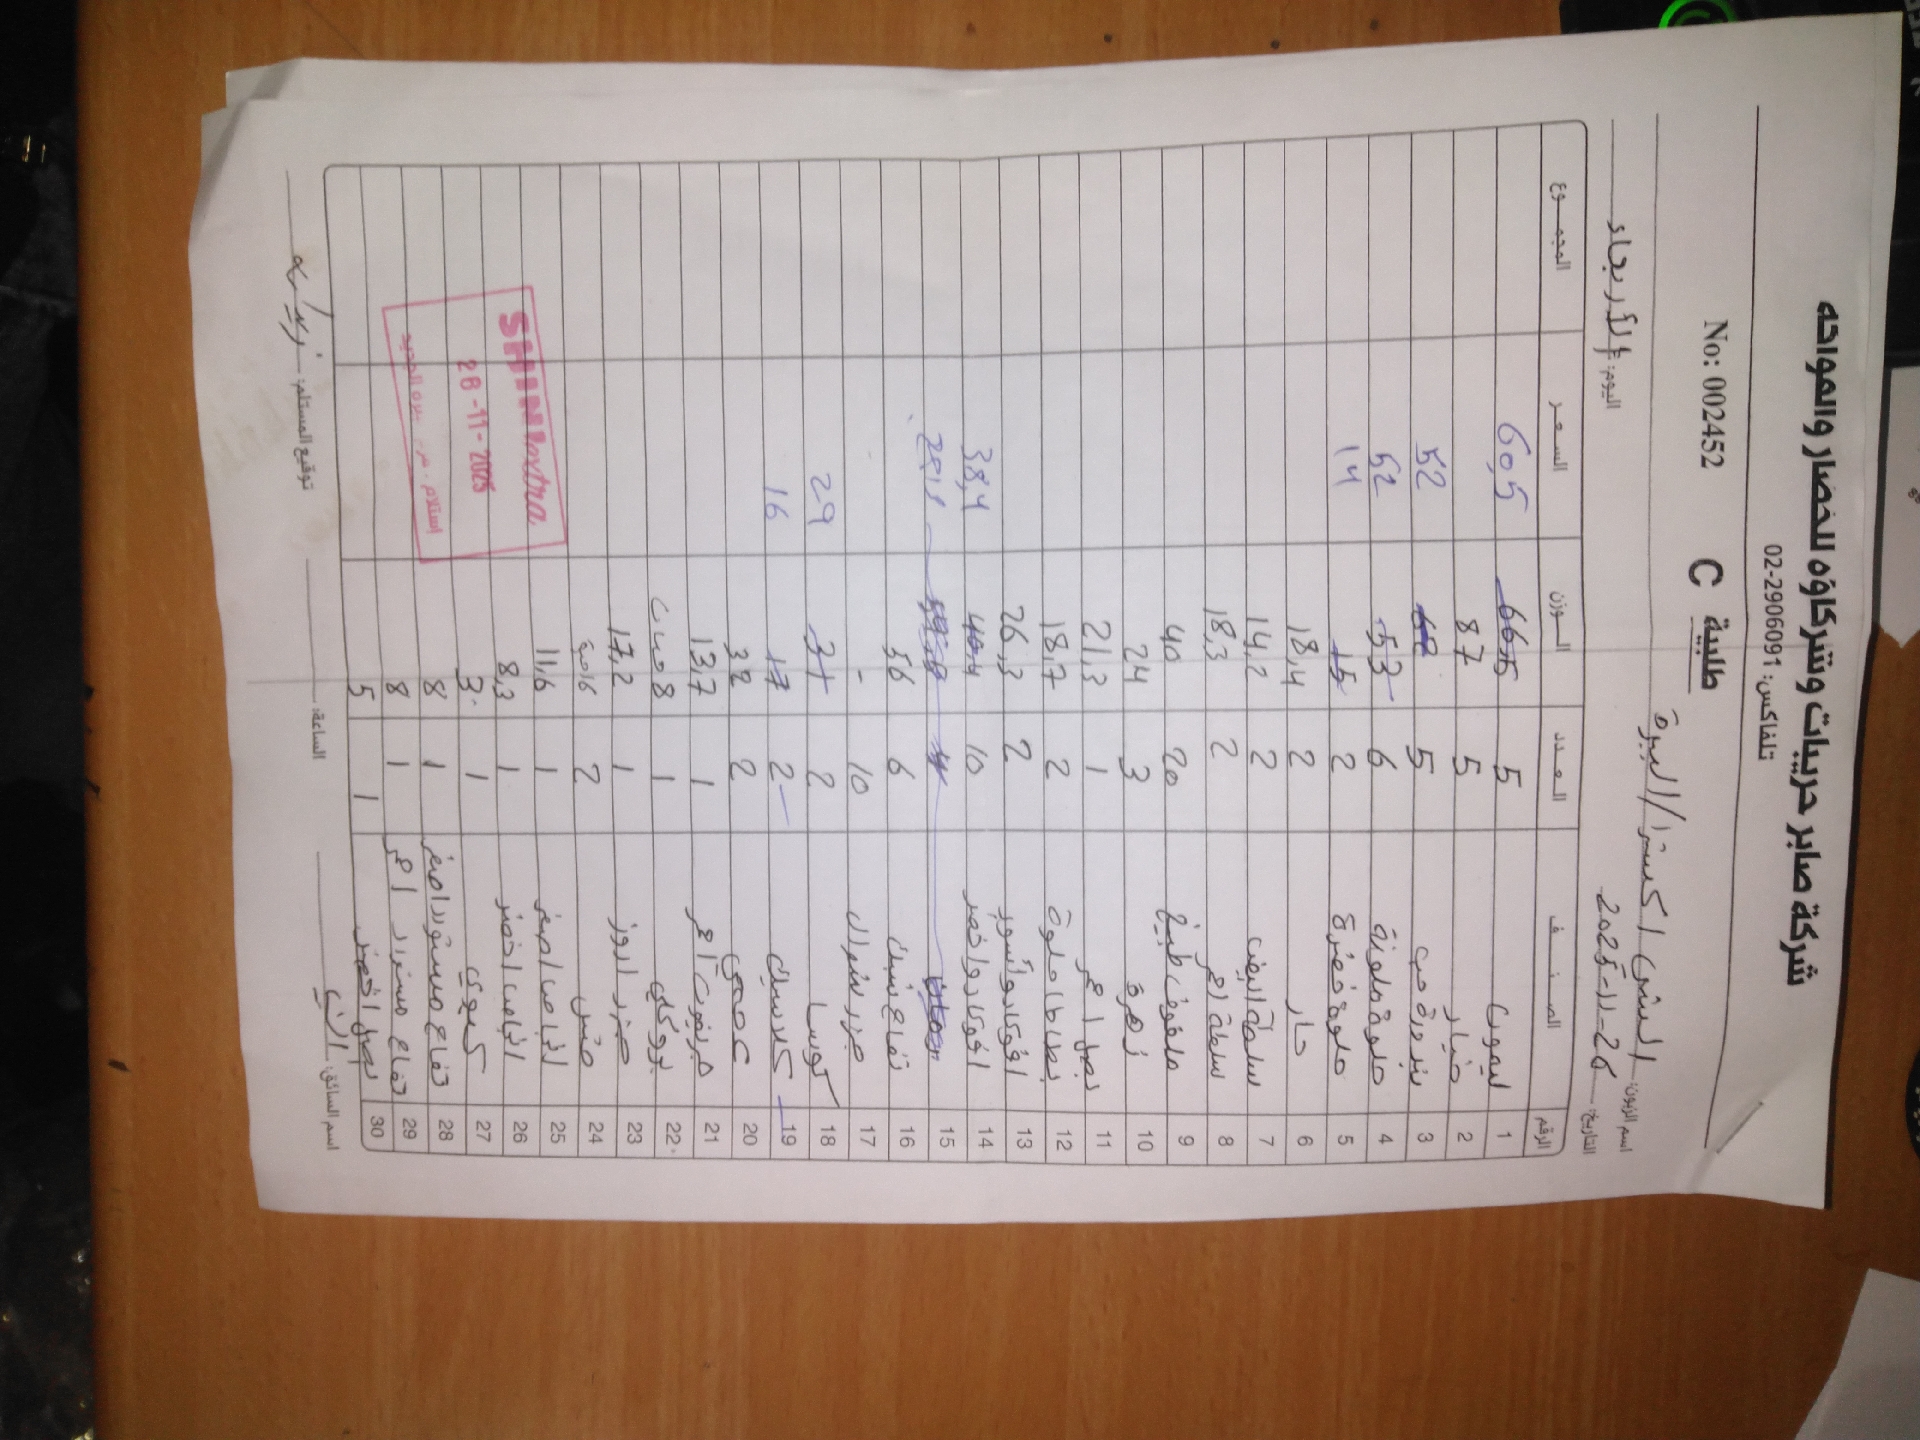 شركة صابر حربيات وشركاؤه للخضار والفواكه
تلفاكس: 02-2906091
No: 002452 طلبية C
اسم الزبون: الشني اكسترا / البيرة
التاريخ: 26-11-2025 اليوم: الأربعاء
الرقم الصنف العدد الوزن السعر المجموع
1 ليمون 5 66,5 60,5
2 خيار 5 87
3 بندورة حب 5 52
4 حلوة ملونة 6 53 52
5 حلوة خضرة 2 15 14
6 حار 2 18,4
7 سلطة ابيض 2 14,2
8 سلطة احمر 2 18,3
9 ملفوف طبيخ 20 40
10 زهرة 3 24
11 بصل احمر 1 21,3
12 بطاطا حلوة 2 18,7
13 افوكادو اسود 2 26,3
14 افوكادو اخضر 10 40,4 38,4
15
16 تفاح 6 56
17 جزر 10 -
18 كوسا 2 31 29
19 2 17 16
20 2 32
21 احمر 1 13,7
22 بروكلي 1 8 حبات
23 1 17,2
24 خس 2 16 حبة
25 اجاص اصفر 1 11,6
26 اجاص اخضر 1 8,3
27 كيوي 1 3.
28 تفاح مستورد اصفر 1 8
29 تفاح مستورد احمر 1 8
30 بصل اخضر 1 5
SHINI extra
26-11-2025
اسم السائق: الساعة: توقيع المستلم: